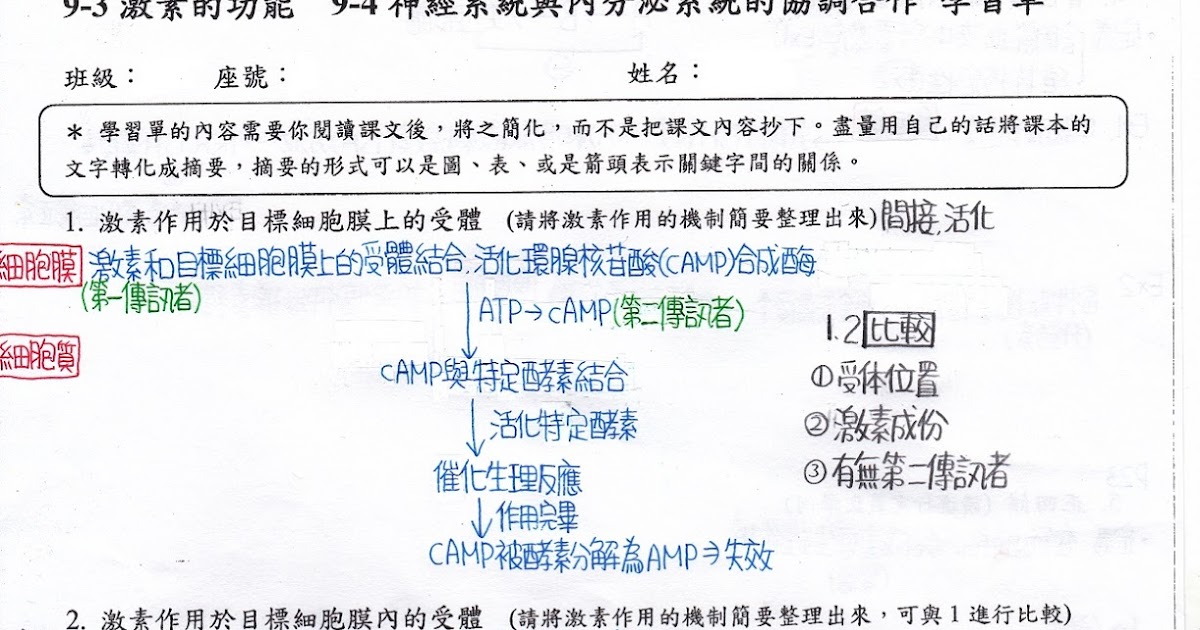 9-3 激素的功能 9-4 神經系統與內分泌系統的協調合作 學習單
班級： 座號： 姓名：
＊ 學習單的內容需要你閱讀課文後，將之簡化，而不是把課文內容抄下。盡量用自己的話將課本的
文字轉化成摘要，摘要的形式可以是圖、表、或是箭頭表示關鍵字間的關係。
1. 激素作用於目標細胞膜上的受體 (請將激素作用的機制簡要整理出來) 間接,活化
細胞膜 激素和目標細胞膜上的受體結合,活化環腺核苷酸(cAMP)合成酶
(第一傳訊者)
ATP→cAMP(第二傳訊者)
細胞質
1.2 比較
cAMP與特定酵素結合
①受体位置
活化特定酵素
②激素成份
催化生理反應
③有無第二傳訊者
作用完畢
CAMP被酵素分解為AMP⇒失效
2. 激素作用於目標細胞膜內的受體 (請將激素作用的機制簡要整理出來，可與 1 進行比較)